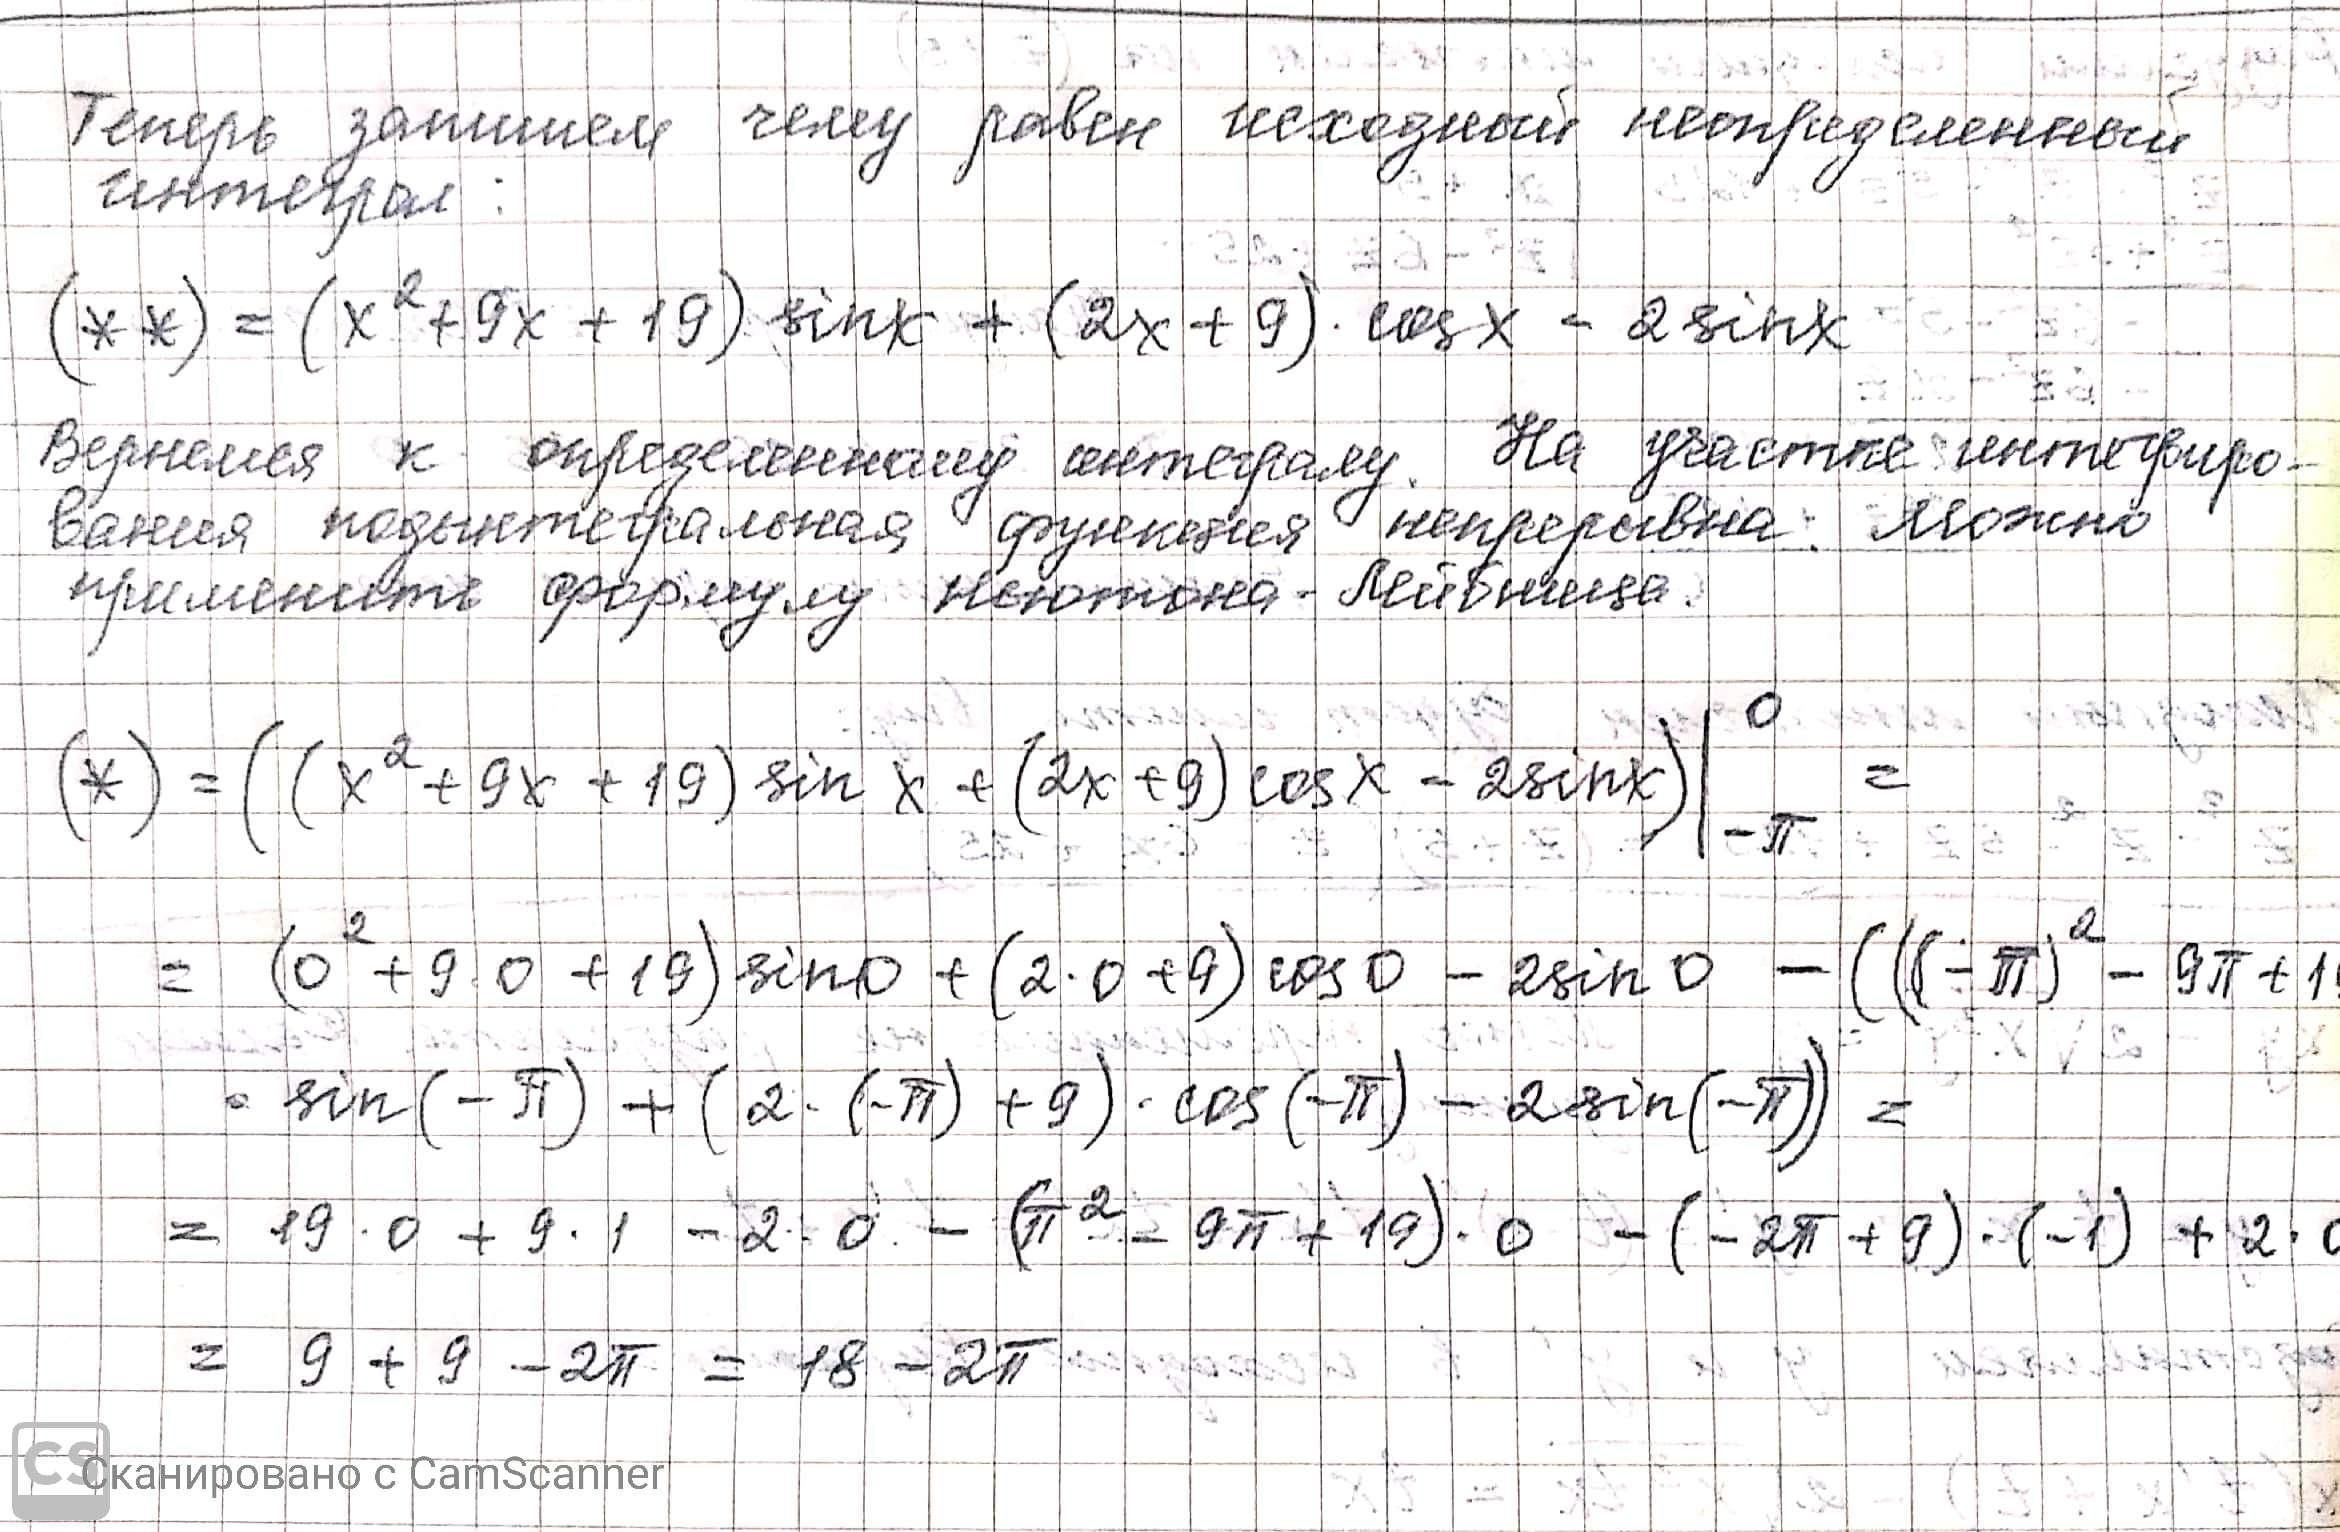 Теперь запишем чему равен исходный неопределенный
интеграл:
(**) = (x² + 9x + 19) sin x + (2x + 9) · cos x - 2 sin x
Вернемся к определенному интегралу. На участке интегриро-
вания подынтегральная функция непрерывна. Можно
применить формулу Ньютона-Лейбница.
(*) = ((x² + 9x + 19) sin x + (2x + 9) cos x - 2 sin x) |₋π⁰ =
= (0² + 9·0 + 19) sin 0 + (2·0 + 9) cos 0 - 2 sin 0 - (((-π)² - 9π + 19
· sin(-π) + (2·(-π) + 9) · cos(-π) - 2 sin(-π)) =
= 19·0 + 9·1 - 2·0 - (π² - 9π + 19)·0 - (-2π + 9)·(-1) + 2·0
= 9 + 9 - 2π = 18 - 2π
CS Сканировано с CamScanner